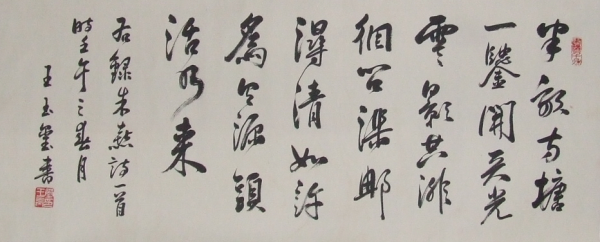 半畝方塘
一鑒開天光
雲影共徘
徊問渠那
得清如許
爲有源頭
活水來
右錄朱熹詩一首
時壬午之春月
王玉璽書